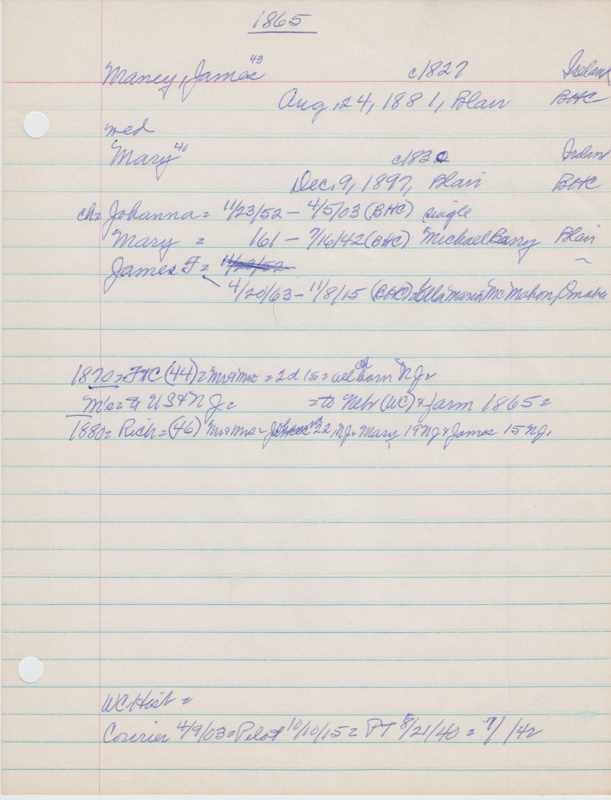 1865
Maney, James 43 c1827 Ireland
Aug. 24, 1881, Blair BHC
med
Mary 40 c1830 Irelan
Dec. 9, 1897, Blair BHC
ch= Johanna = 11/23/52 - 4/5/03 (BHC) single
Mary = 161 - 7/16/42 (BHC) Michael Barry Blair
James F =
4/20/63 - 11/8/15 (BHC) "Ella" Maria Mc Mahon, Omaha
1870 = FtC (44) = Mr & Mrs = 2d 1s = all ch born N.J.
M/c = to US & N.J. = = to Nebr (WC) & farm 1865 =
1880 = Rich = (46) Mr & Mrs = 22, N.J. Mary 19 N.J. & James 15 N.J.
WC Hist =
Courier 4/9/03 = Pilot 10/10/15 = PT 8/21/40 = 7/ /42